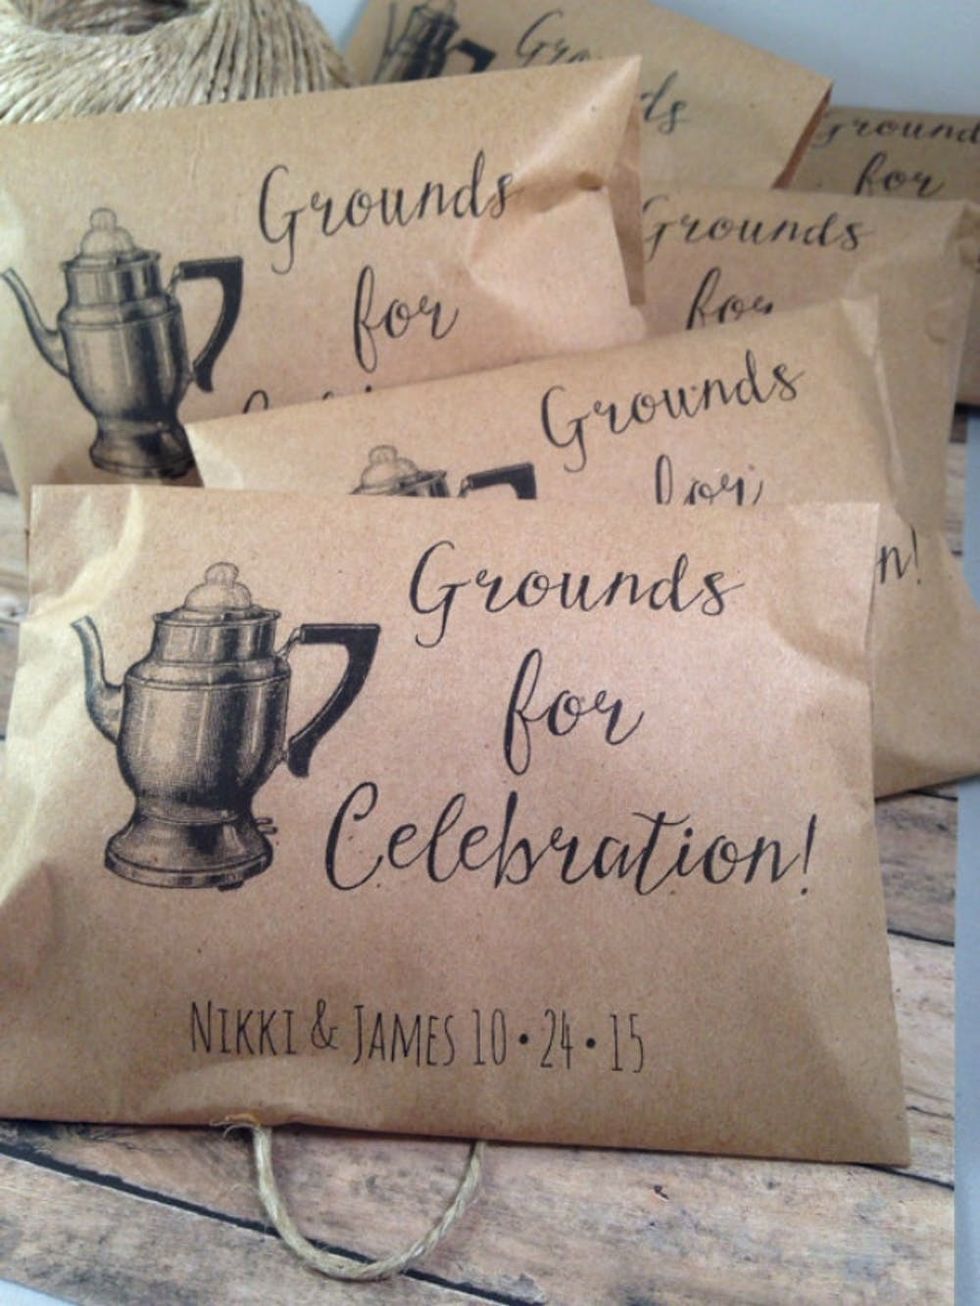 Grounds
Grounds
for
Grounds
for
Grounds
for
Grounds
for
n!
Grounds
for
Celebration!
NIKKI & JAMES 10•24•15